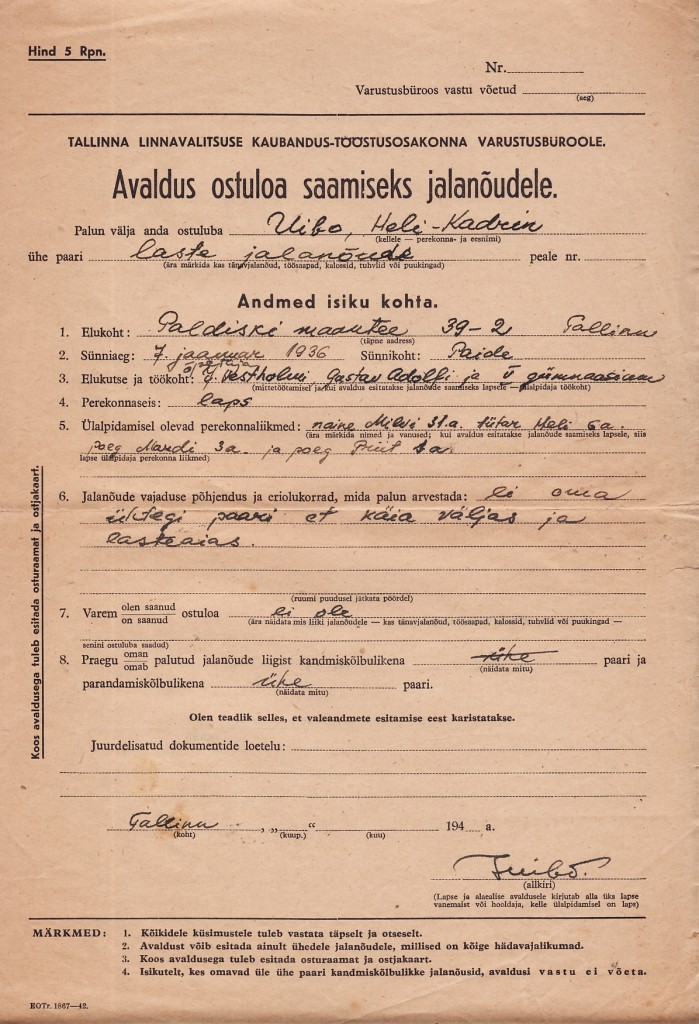 Hind 5 Rpn.
Nr.
Varustusbüroos vastu võetud
(aeg)
TALLINNA LINNAVALITSUSE KAUBANDUS-TÖÖSTUSOSAKONNA VARUSTUSBÜROOLE.
Avaldus ostuloa saamiseks jalanõudele.
Palun välja anda ostuluba Uibo, Heli-Kadrin
(kellele — perekonna- ja eesnimi)
ühe paari laste jalanõude peale nr.
(ära märkida kas tänavjalanõud, töösaapad, kalossid, tuhvlid või puukingad)
Andmed isiku kohta.
1. Elukoht: Paldiski maantee 39-2 Tallinn
(täpne aadress)
2. Sünniaeg: 7. jaanuar 1936 Sünnikoht: Paide
3. Elukutse ja töökoht: Vestholmi, Gustav Adolfi ja V gümnaasium
(mittetöötamisel ja kui avaldus esitatakse jalanõude saamiseks lapsele — ülalpidaja töökoht)
4. Perekonnaseis: laps
5. Ülalpidamisel olevad perekonnaliikmed: naine Milvi 31 a. tütar Heli 6 a.
(ära märkida nimed ja vanused; kui avaldus esitatakse jalanõude saamiseks lapsele, siis
poeg Mardi 3 a. ja poeg Priit 1 a.
lapse ülalpidaja perekonna liikmed)
6. Jalanõude vajaduse põhjendus ja eriolukorrad, mida palun arvestada: ei oma
ühtegi paari et käia väljas ja
lasteaias.
(ruumi puudusel jätkata pöördel)
7. Varem olen saanud on saanud ostuloa ei ole
(ära näidata mis liiki jalanõudele — kas tänavjalanõud, töösaapad, kalossid, tuhvlid või puukingad —
senini ostuluba saadud)
8. Praegu oman omab palutud jalanõude liigist kandmiskõlbulikena ühe paari ja
(näidata mitu)
parandamiskõlbulikena ühe paari.
(näidata mitu)
Olen teadlik selles, et valeandmete esitamise eest karistatakse.
Juurdelisatud dokumentide loetelu:
Tallinn , „ “ 194 a.
(koht) (kuup.) (kuu)
(allkiri)
(Lapse ja alaealise avaldusele kirjutab alla üks lapse
vanemaist või hooldaja, kelle ülalpidamisel on laps)
MÄRKMED: 1. Kõikidele küsimustele tuleb vastata täpselt ja otseselt.
2. Avaldust võib esitada ainult ühedele jalanõudele, millised on kõige hädavajalikumad.
3. Koos avaldusega tuleb esitada osturaamat ja ostjakaart.
4. Isikutelt, kes omavad üle ühe paari kandmiskõlbulikke jalanõusid, avaldusi vastu ei võeta.
EOTr. 1867—42.
Koos avaldusega tuleb esitada osturaamat ja ostjakaart.